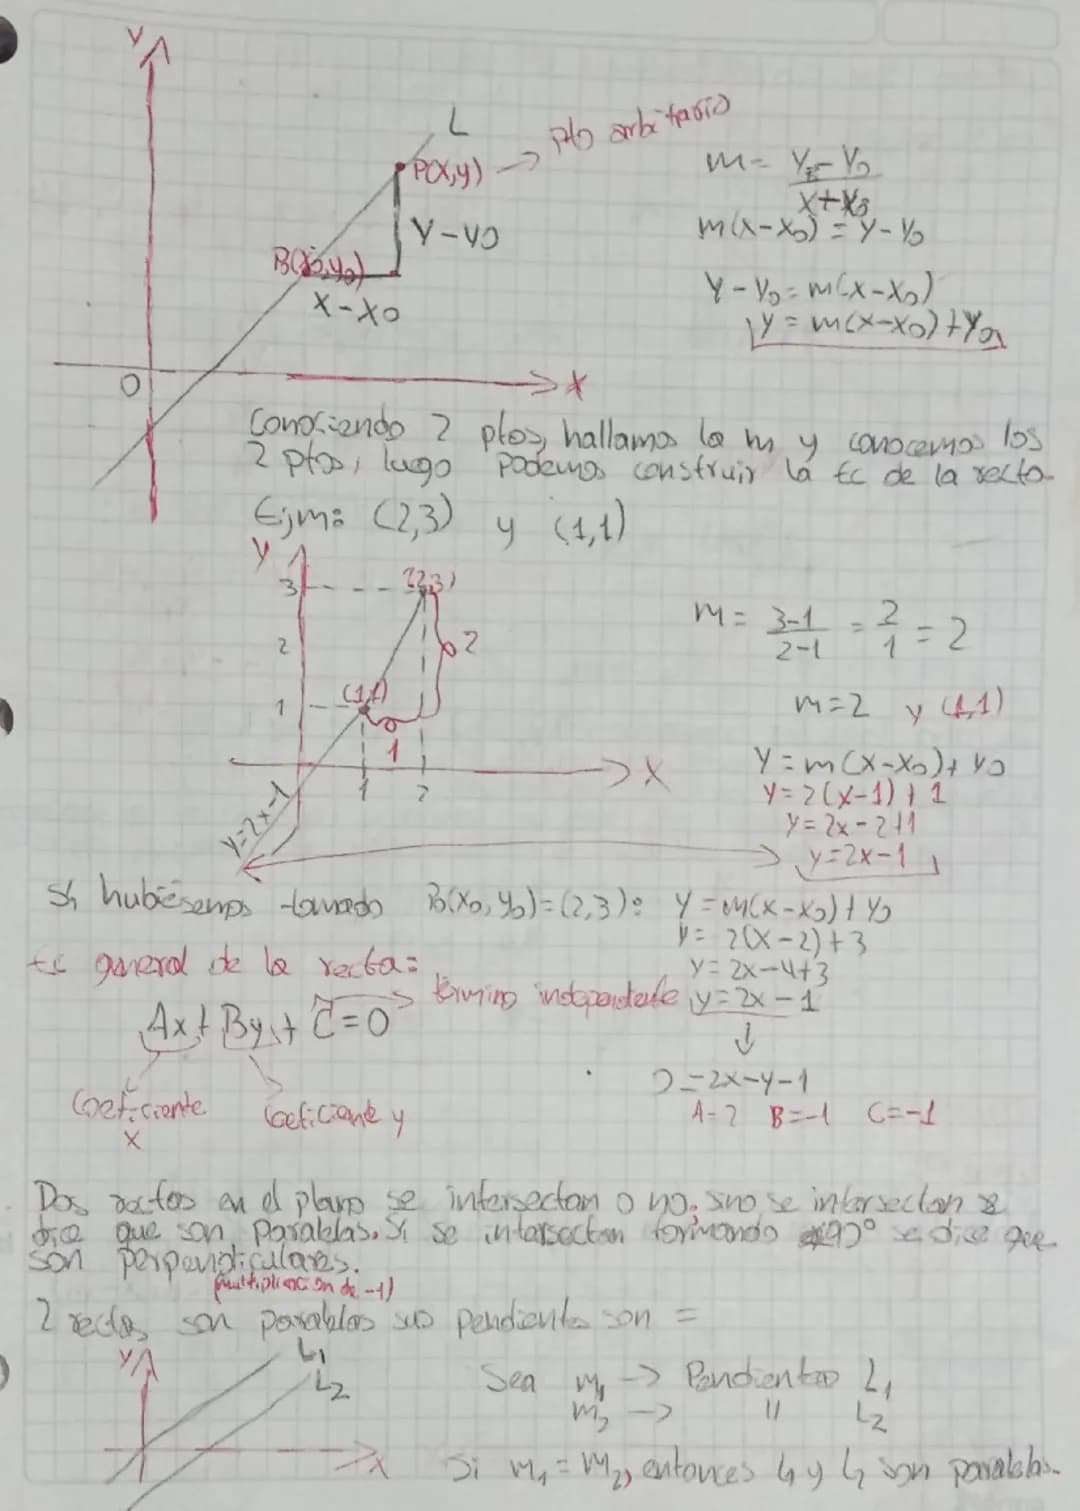 Y
L
P(x,y) → pto arbitrario
m = y - y0 / x + x0
Y - Y0
m(x-x0) = y - y0
B(x0,y0)
X - X0
Y - Y0 = m(x-x0)
y = m(x-x0) + y0
0
X
Conociendo 2 ptos, hallamos la m y conocemos los
2 ptos, luego podemos construir la Ec de la recta.
Ejm: (2,3) y (1,1)
Y
3 (2,3)
2 2
m = 3-1 / 2-1 = 2 / 1 = 2
1 (1,1)
m=2 y (1,1)
1
X
y = m(x-x0) + y0
1 2
y = 2(x-1) + 1
y = 2x - 2 + 1
y=2x-1
y=2x-1
Si hubiésemos tomado B(x0,y0)=(2,3): y = m(x-x0) + y0
y = 2(x-2)+3
Ec general de la recta:
y = 2x-4+3
Ax + By + C = 0 → término independiente
y = 2x - 1
↓
0 = 2x-y-1
Coeficiente x
Coeficiente y
A=2 B=-1 C=-1
Dos rectas en el plano se intersectan o no, si no se intersectan se
dice que son paralelas. Si se intersectan formando 90° se dice que
son perpendiculares.
(multiplicación de -1)
2 rectas son paralelas sus pendientes son =
Y
L1
L2
X
Sea m1 → Pendientes L1
m2 → " L2
Si m1 = m2, entonces L1 y L2 son paralelas.